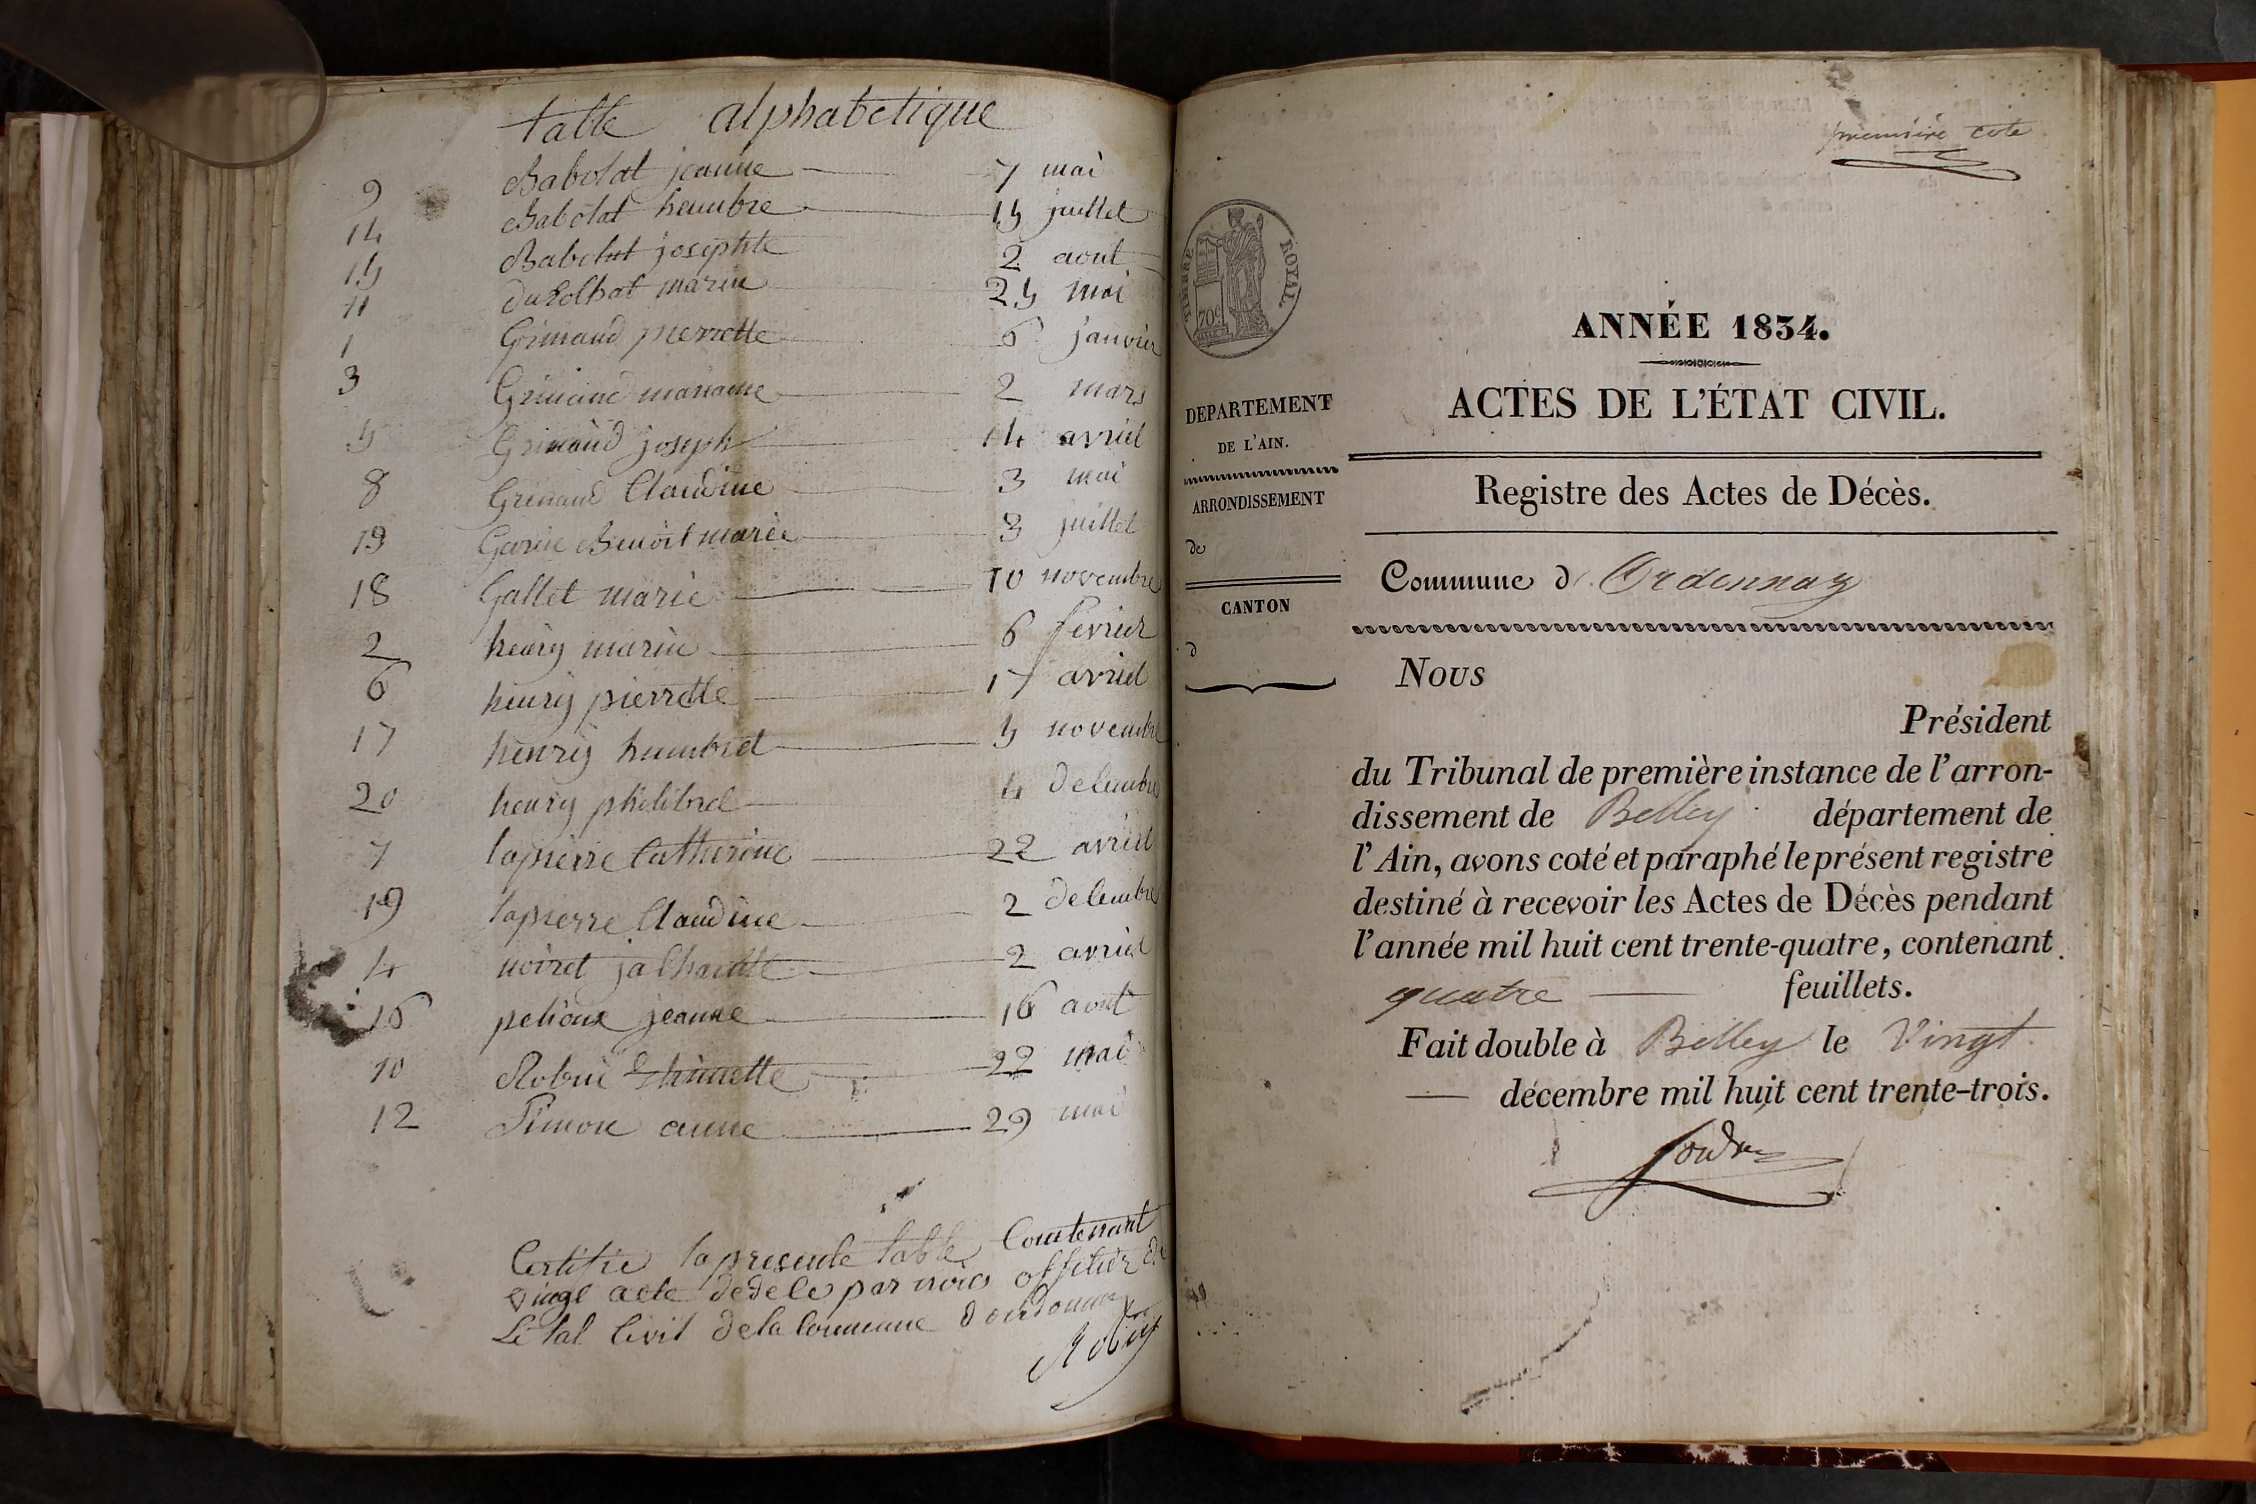 table alphabetique
9 Babolat jeanne 7 mai
14 Babolat humbre 15 juillet
15 Babolat josephte 2 aout
11 marin 25 mai
1 Grinand pierrette 6 janvier
3 Grinand marianne 2 mars
5 Grinand joseph 14 avriel
8 Grinand Claudine 3 mai
13 Garin Benoit marie 3 juillet
18 Gallet marie 10 novembre
2 henry marin 6 fevrier
6 henry pierrette 17 avriel
17 henry humbret 5 novembre
20 henry philibred 4 decembre
7 lapierre Catherine 22 avriel
19 lapierre Claudine 2 decembre
4 noiret 2 avriel
16 jeanne 16 aout
10 Robin 22 mai
12 Simon anne 29 mai
Certifie la presente table Contenant
vingt acte dedece par nous officier de
Letat Civil dela Commune
Robin
première cote
TIMBRE ROYAL
70c
ANNÉE 1834.
DEPARTEMENT
DE L'AIN.
ARRONDISSEMENT
de
CANTON
d
ACTES DE L'ÉTAT CIVIL.
Registre des Actes de Décès.
Commune d'Ordonnaz
Nous
Président
du Tribunal de première instance de l'arron-
dissement de Belley département de
l'Ain, avons coté et paraphé le présent registre
destiné à recevoir les Actes de Décès pendant
l'année mil huit cent trente-quatre, contenant
quatre feuillets.
Fait double à Belley le Vingt
décembre mil huit cent trente-trois.